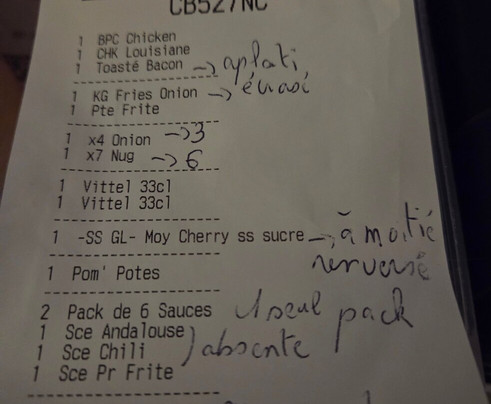 CB527NC
1 BPC Chicken
1 CHK Louisiane
1 Toasté Bacon → aplati
écrasé
1 KG Fries Onion →
1 Pte Frite
1 x4 Onion → 3
1 x7 Nug → 6
1 Vittel 33cl
1 Vittel 33cl
1 -SS GL- Moy Cherry ss sucre → à moitié
renversé
1 Pom' Potes
2 Pack de 6 Sauces 1 seul pack
1 Sce Andalouse
1 Sce Chili ) absente
1 Sce Pr Frite